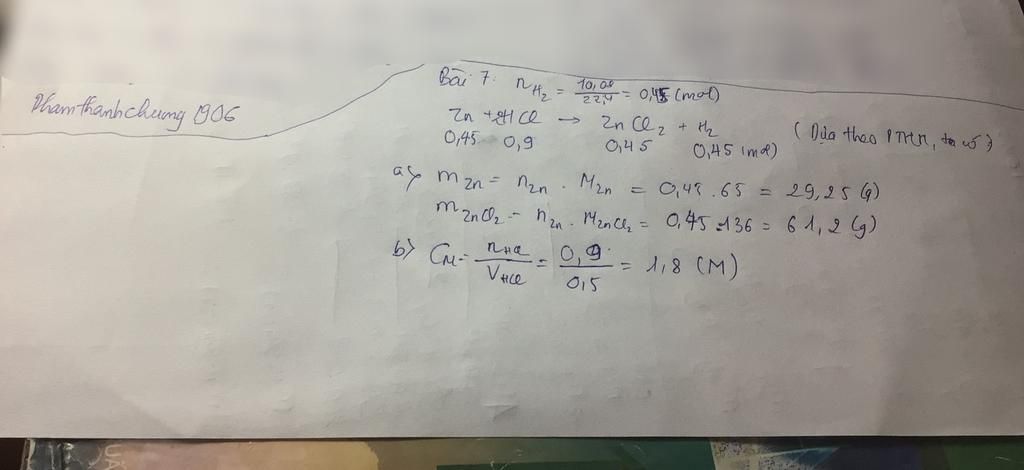 Phamthanhchung 1906
Bài 7: nH2 = 10,08/22,4 = 0,45 (mol)
Zn + 2HCl → ZnCl2 + H2 (Dựa theo PTHH, ta có)
0,45 0,9 0,45 0,45 (mol)
a> mZn = nZn . MZn = 0,45 . 65 = 29,25 (g)
mZnCl2 = nZn . MZnCl2 = 0,45 . 136 = 61,2 (g)
b> CM = nHCl/VHCl = 0,9/0,5 = 1,8 (M)